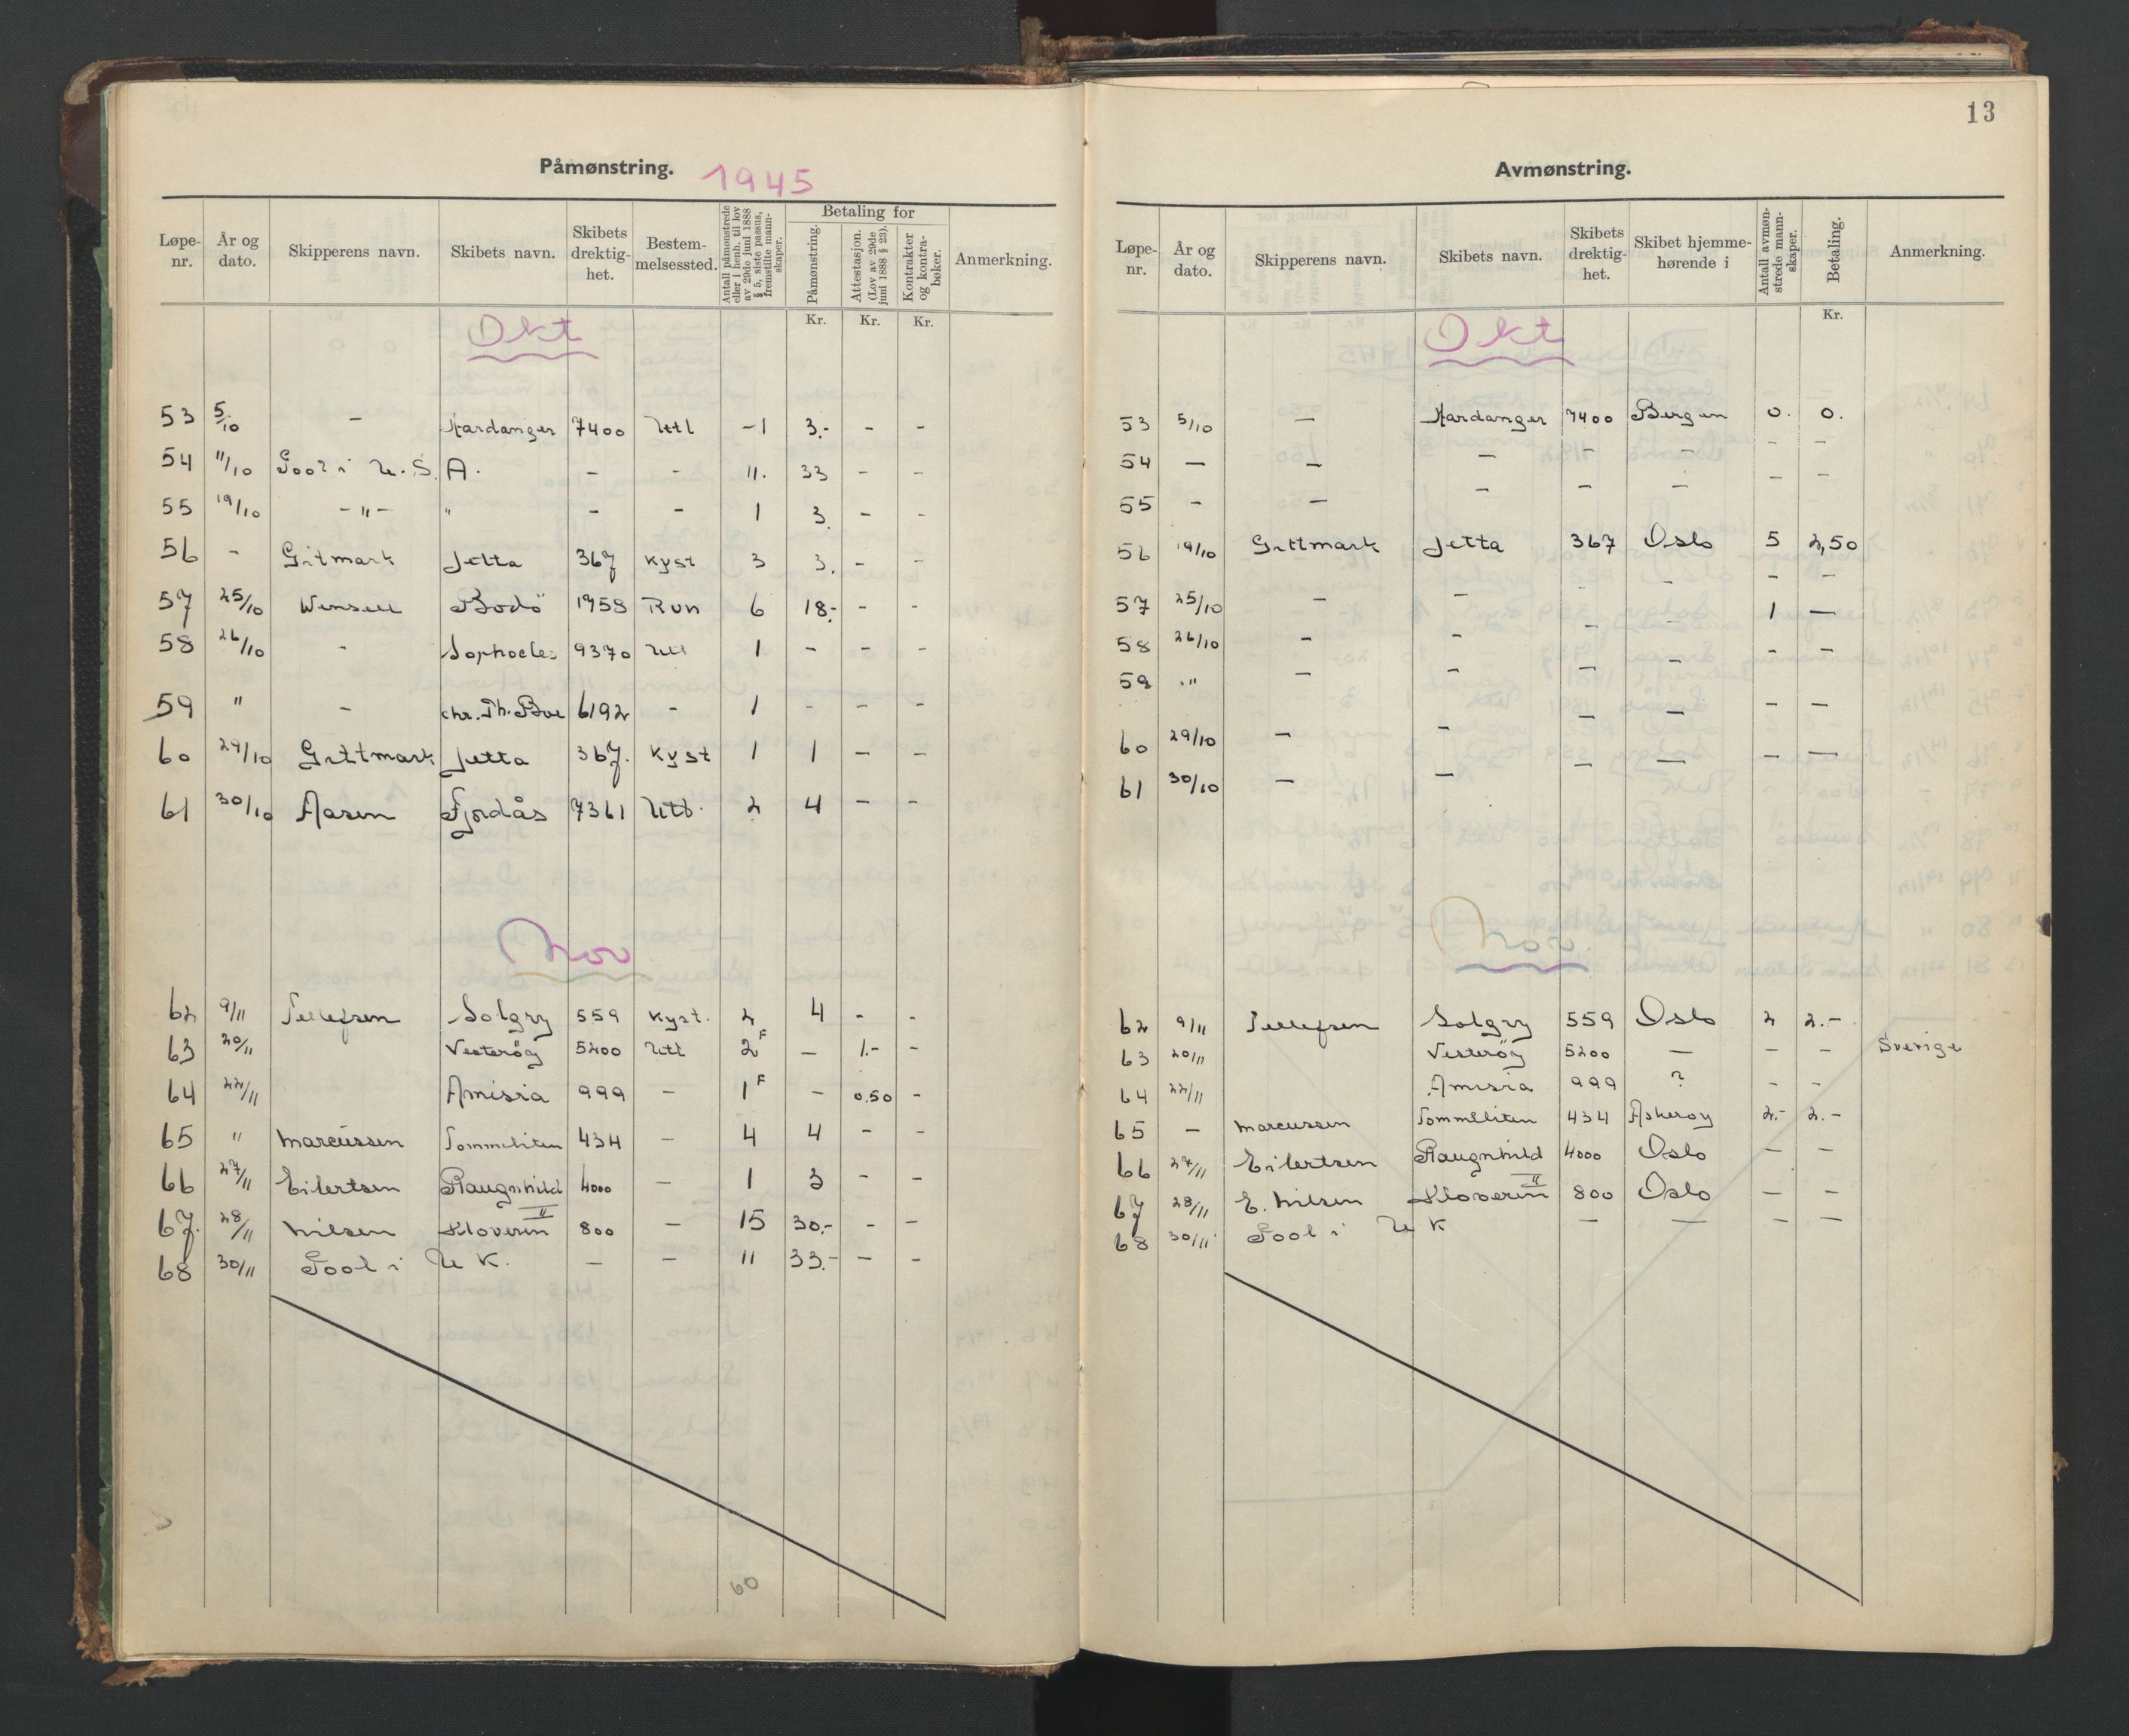 13
Påmønstring. 1945
Løpe-nr. År og dato. Skipperens navn. Skibets navn. Skibets drektig-het. Bestem-melsessted. Antall påmønstrede eller i henh. til lov av 29de juni 1888 § 5, siste passus, fremstilte mann-skaper. Betaling for Påmønstring. Attestasjon. (Lov av 29de juni 1888 § 23). Kontrakter og kontra-bøker. Anmerkning.
Kr. Kr. Kr.
Okt
53 5/10 - Hardanger 7400 Utl -1 3.- - -
54 11/10 Sool i U.S.A. - - 11. 33 - -
55 19/10 -"- " - - 1 3. - -
56 - Gitmark Jetta 367 Kyst 3 3. - -
57 25/10 Bodö 1958 6 18.- - -
58 26/10 - Sophocles 9370 Utl 1 - - -
59 " - Chr. Th. Boe 6192 - 1 - - -
60 29/10 Gittmark Jetta 367. Kyst 1 1 - -
61 30/10 Aasen Fjordås 7361 Utl. 2 4 - -
Nov
62 9/11 Tellefsen Solgry 559 Kyst. 2 4 - -
63 20/11 Vesteröy 5200 Utl 2 F - 1.- -
64 22/11 Amisia 999 - 1 F - 0.50 -
65 " Marcussen Tommeliten 434 - 4 4 - -
66 27/11 Eilertsen Raugnhild 4000 - 1 3 - -
67. 28/11 Nilsen Kloverin II 800 - 15 30.- - -
68 30/11 Sool i U K. - - 11 33.- - -
60
Avmønstring.
Løpe-nr. År og dato. Skipperens navn. Skibets navn. Skibets drektig-het. Skibet hjemme-hørende i Antall avmøn-strede mann-skaper. Betaling. Anmerkning.
Kr.
Okt
53 5/10 - Hardanger 7400 Bergen 0. 0.
54 - - - - - - -
55 - - - - - - -
56 19/10 Gittmark Jetta 367 Oslo 5 2,50
57 25/10 - - - - - -
58 26/10 - - - - 1 -
59 " - - - - - -
60 29/10 - - - - - -
61 30/10 - - - - - -
Nov.
62 9/11 Tellefsen Solgry 559 Oslo 2 2.-
63 20/11 Vesteröy 5200 - - - Sverige
64 22/11 Amisia 999 ? - -
65 - Marcussen Tommeliten 434 Askeroy 2.- 2.-
66 27/11 Eilertsen Raugnhild 4000 Oslo - -
67 28/11 E. Nilsen Kloverin II 800 Oslo - -
68 30/11 Sool i U K - - - -